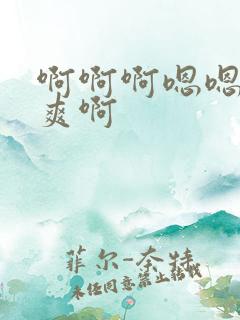 啊啊啊嗯嗯
爽啊
菲尔-奈特
未经同意禁止转载